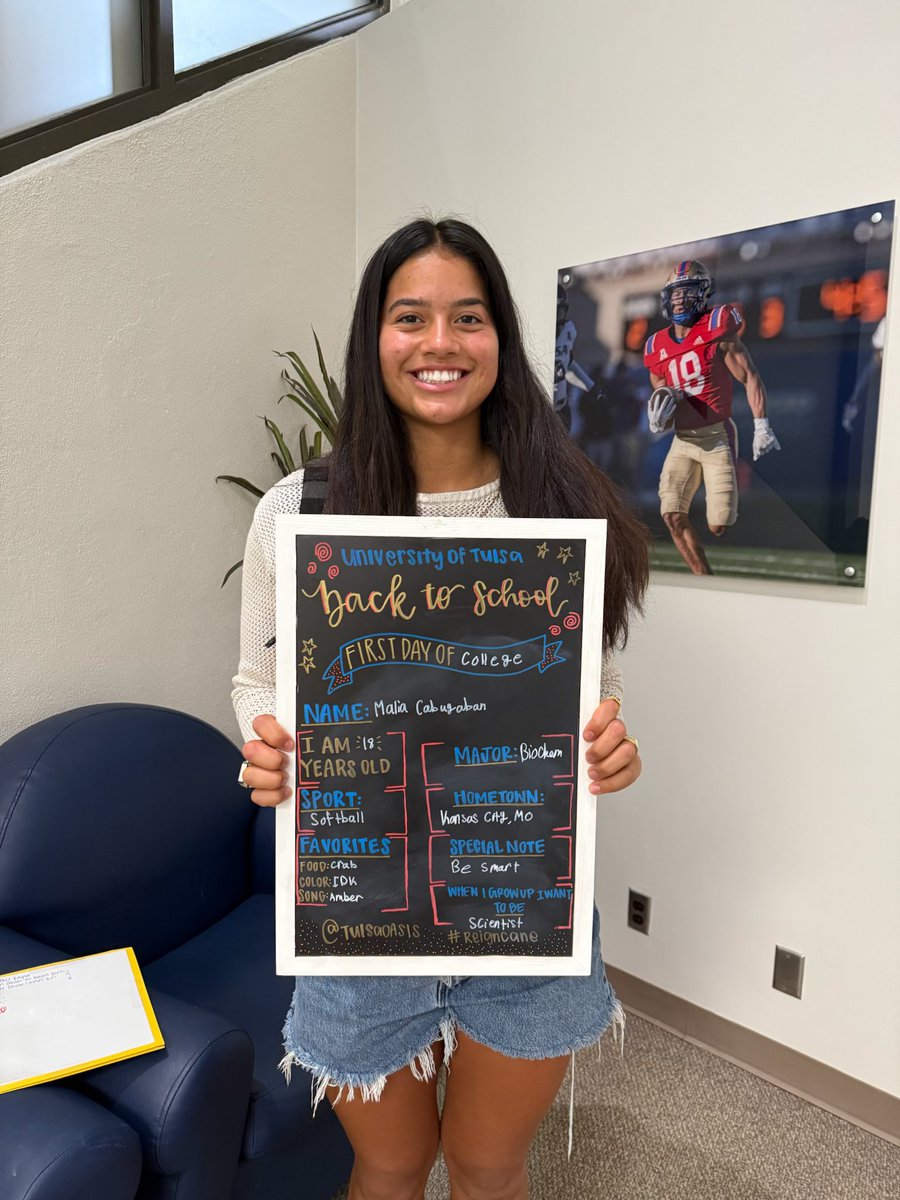 University of Tulsa
Back to School
FIRST DAY OF College
NAME: Malia Cabugaban
I AM 18
YEARS OLD
SPORT:
Softball
FAVORITES
FOOD: Crab
COLOR: IDK
SONG: Amber
MAJOR: Biochem
HOMETOWN:
Kansas City, MO
SPECIAL NOTE
Be smart
WHEN I GROW UP I WANT
TO BE
Scientist
@TULSAOASIS
#REIGNCANE
18